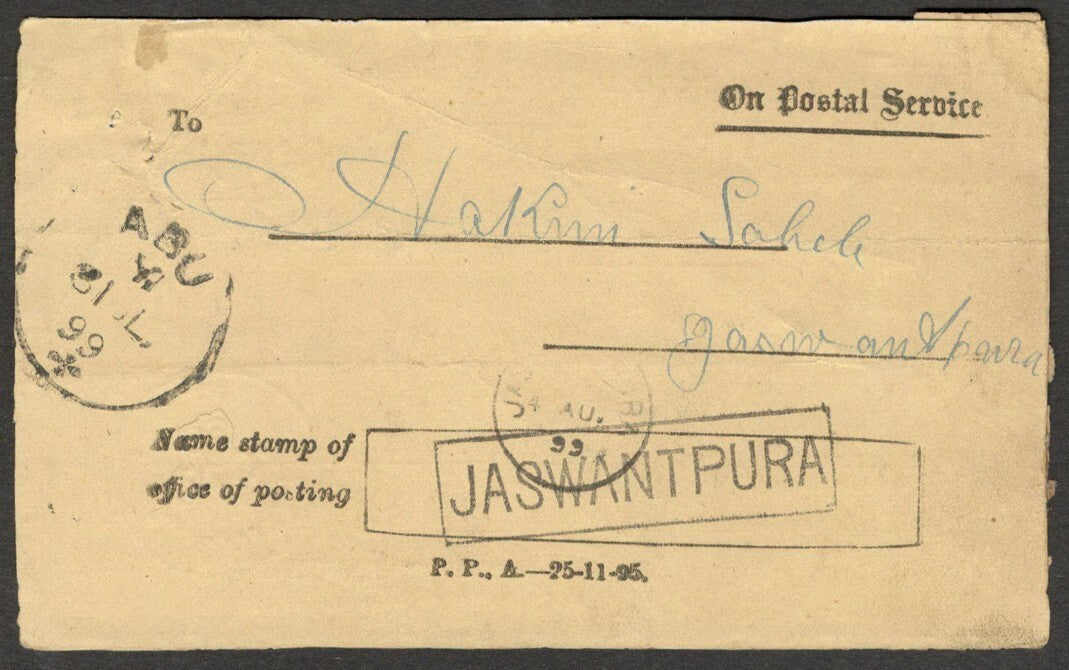 On Postal Service
To
Hakim Saheb
Jaswantpura
ABU
31 JL.
99
4 AU.
99
Name stamp of
office of posting
JASWANTPURA
P. P., A.—25-11-95.